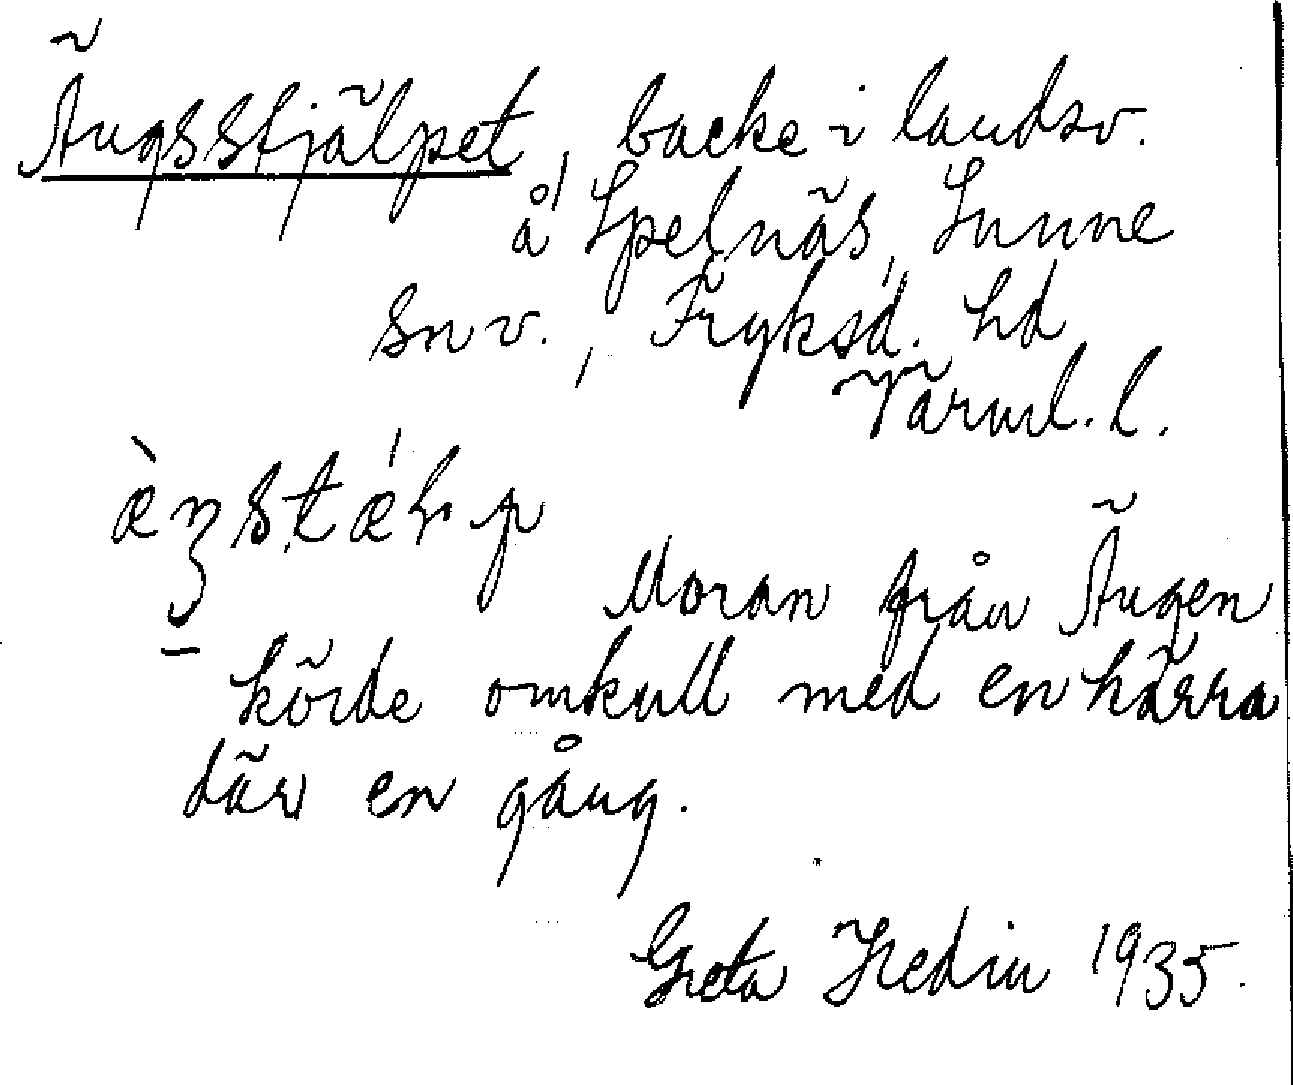 Ängsstjälpet, backe i landsv.
å Spelnäs, Sunne
sn v., Fryksd. hd
Värml. l.
Moran från Ängen
körde omkull med en kärra
där en gång.
Greta Hedin 1935.